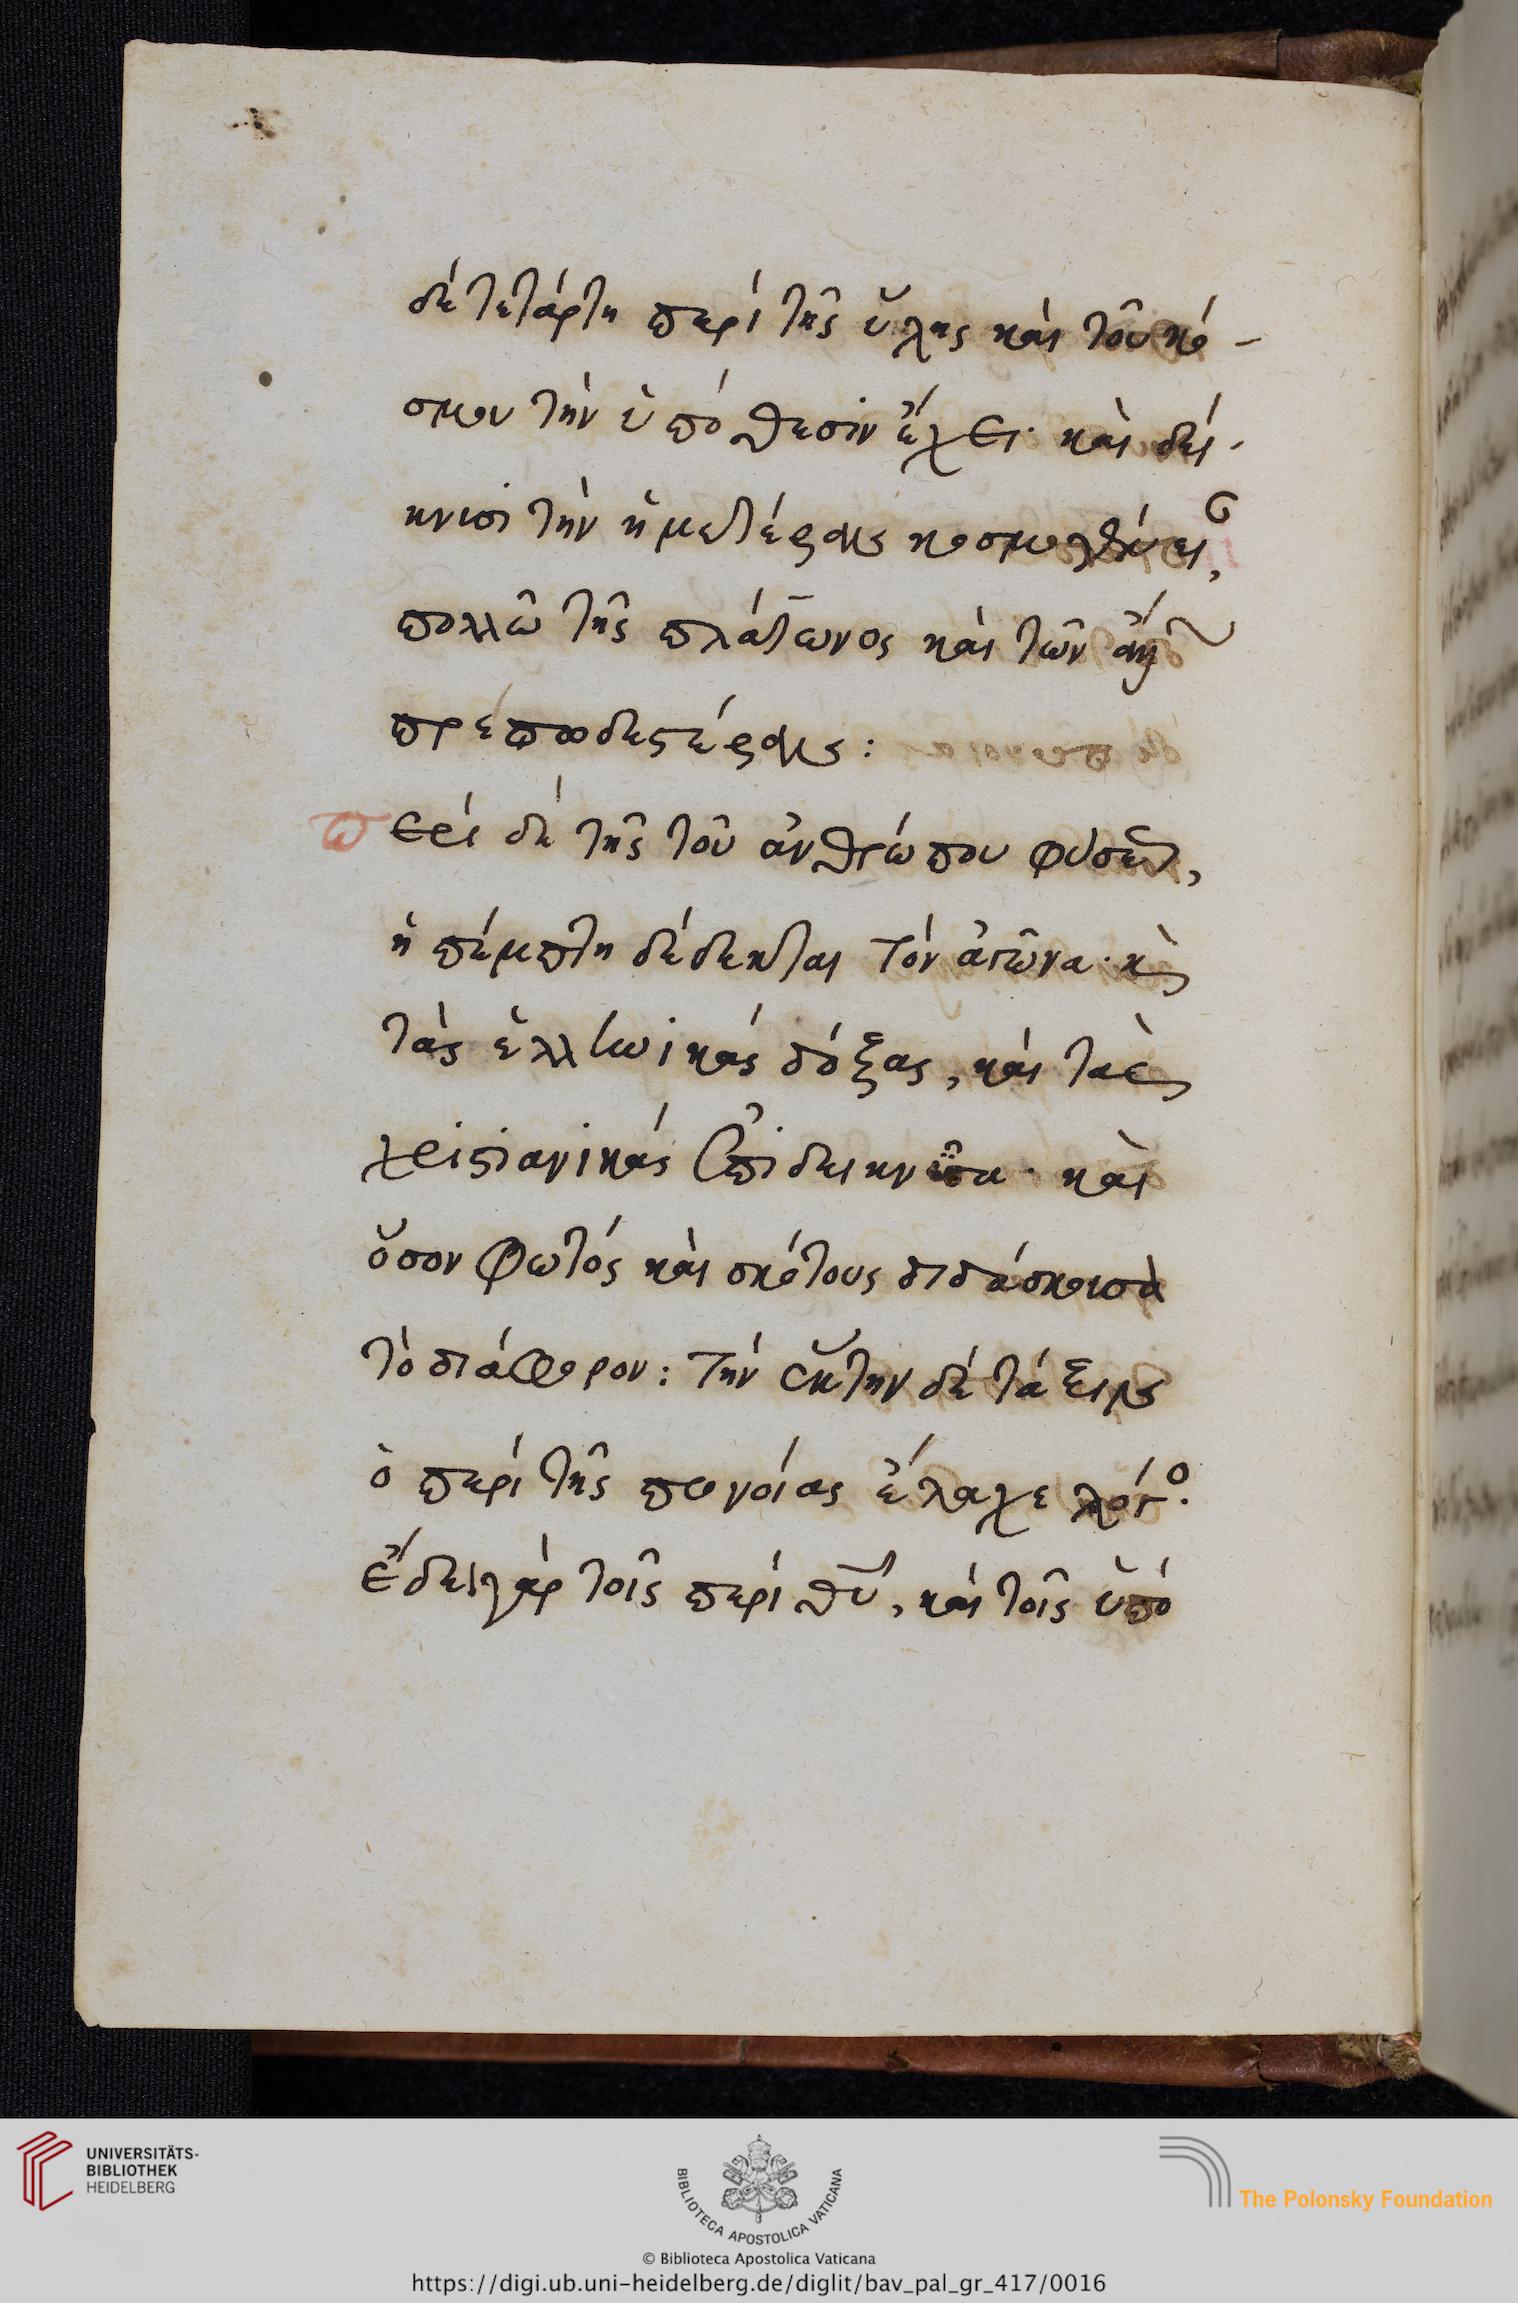 δὲ τετάρτη περὶ τῆς ὕλης καὶ τοῦ κό-
σμου τὴν ὑπόθεσιν ἔχει· καὶ δεί-
κνυσι τὴν ἡμετέραν
πολλῶ τῆς πλάτωνος καὶ τῶν
πρεπωδεστέραν:
Περὶ δὲ τῆς τοῦ ἀνθρώπου φύσεως,
ἡ πέμπτη δέδεκται τὸν ἀγῶνα· κ̀
τὰς ἑλληνικὰς δόξας, καὶ τὰς
χριστιανικὰς ἐπιδεικνῦσα· καὶ
ὅσον φωτὸς καὶ σκότους διδάσκουσα
τὸ διάφορον: τὴν ἕκτην δὲ τάξιν
ὁ περὶ τῆς προνοίας ἔλαχε λόγο.
ἔδει γὰρ τοῖς περὶ θ̅υ̅, καὶ τοῖς ὑπὸ
UNIVERSITÄTS-
BIBLIOTHEK
HEIDELBERG
BIBLIOTECA APOSTOLICA VATICANA
The Polonsky Foundation
© Biblioteca Apostolica Vaticana
https://digi.ub.uni-heidelberg.de/diglit/bav_pal_gr_417/0016